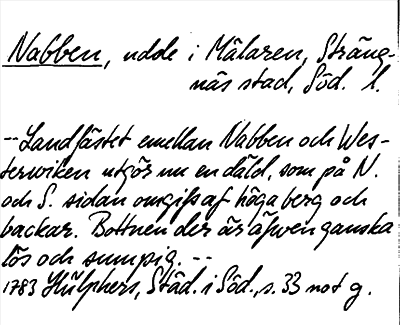 Nabben, udde i Mälaren, Sträng-
näs stad, Söd. l.
-- Landfästet emellan Nabben och Wes-
terwiken utgör nu en däld, som på N.
och S. sidan omgifs af höga berg och
backar. Bottnen der är äfwen ganska
lös och sumpig. --
1783 Hülphers, Städ. i Söd., s. 33 not g.